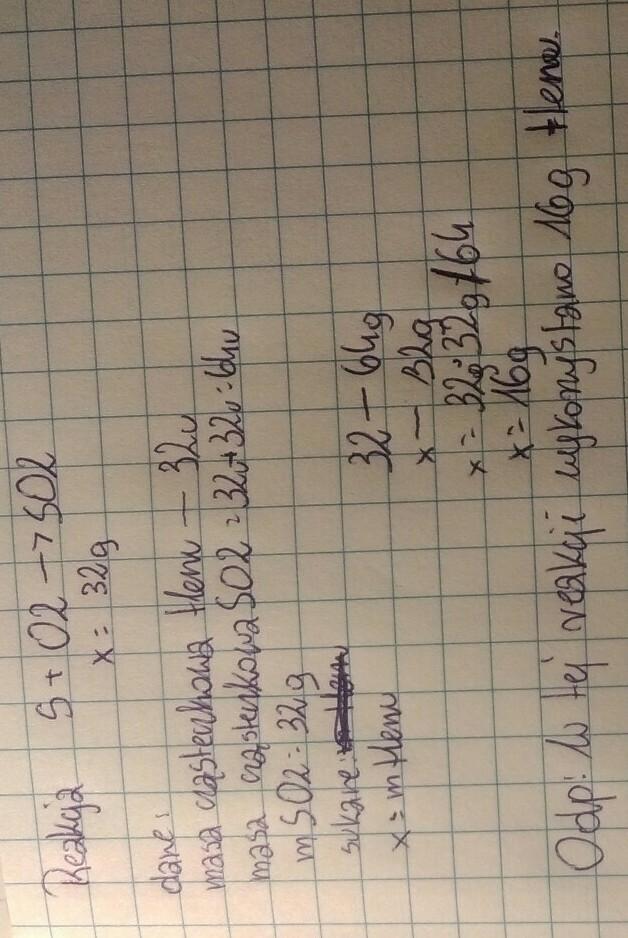 Reakcja S + O2 -> SO2
x = 32g
dane:
masa cząsteczkowa tlenu - 32u
masa cząsteczkowa SO2 = 32u + 32u = 64u
m SO2 = 32g
szukane:
x = m tlenu
32 - 64g
x - 32g
x = 32g · 32g / 64
x = 16g
Odp: W tej reakcji wykorzystano 16g tlenu.